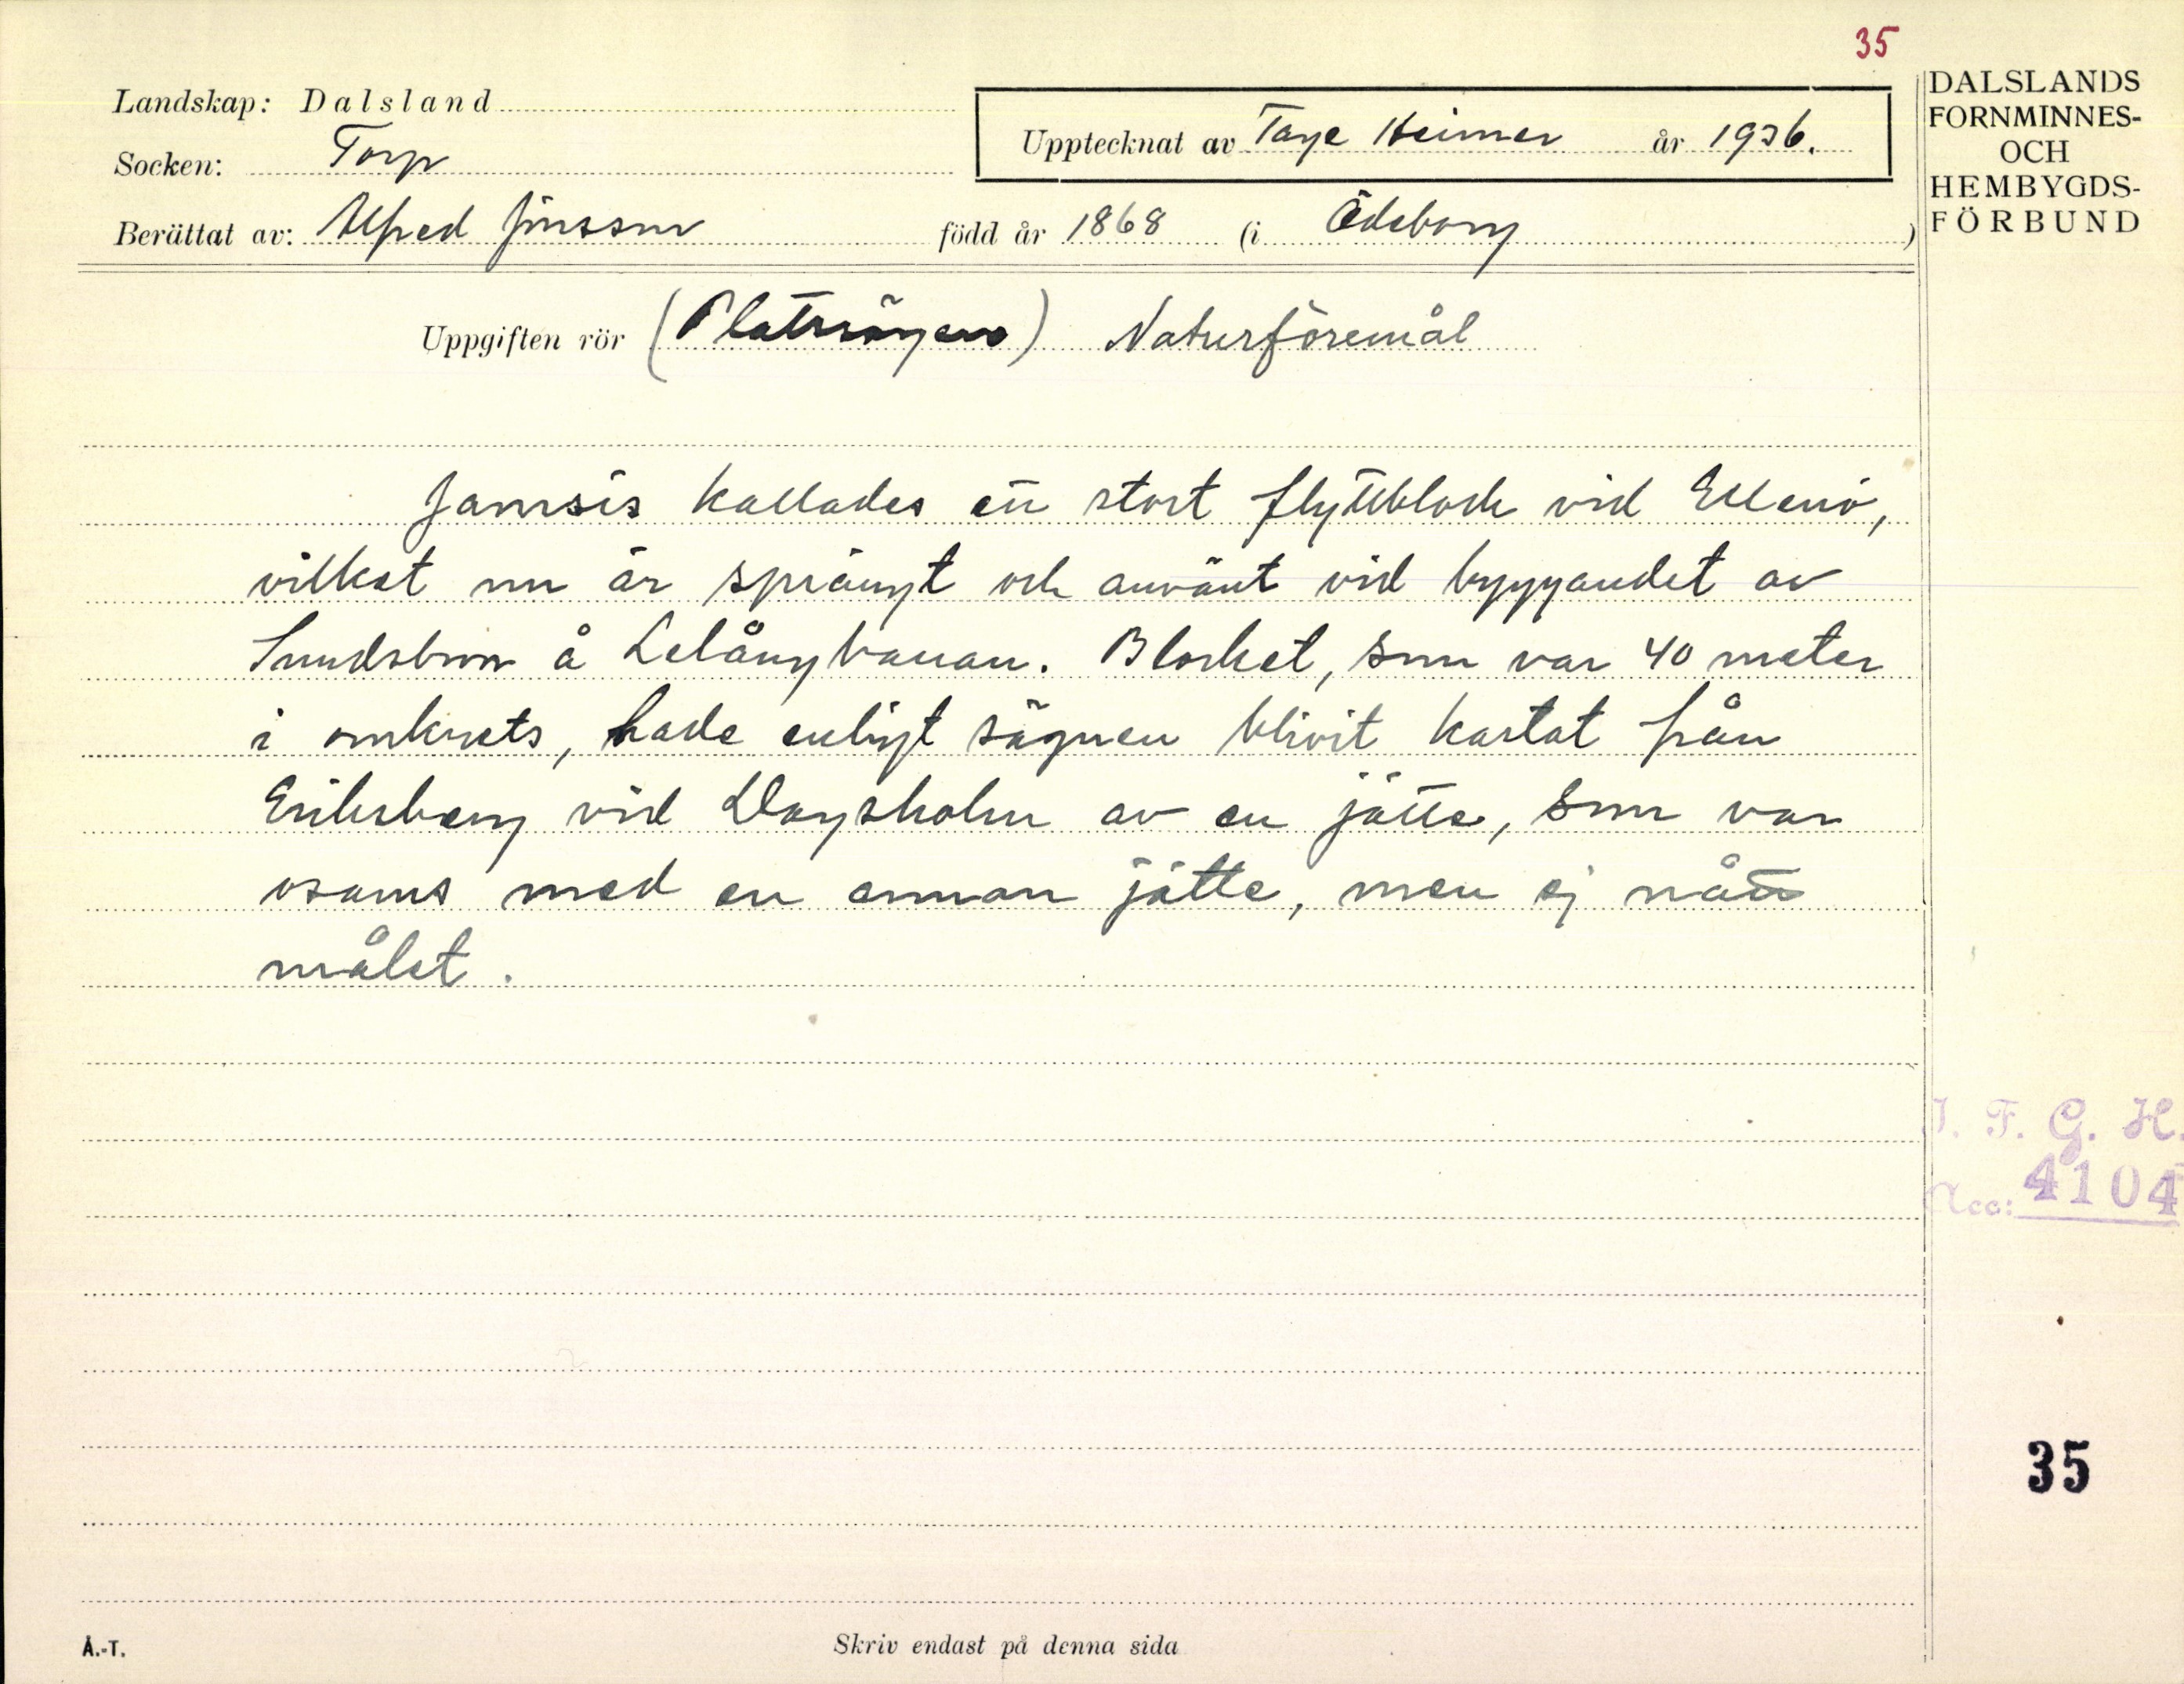 35
Landskap: Dalsland
Upptecknat av Tage Heimer år 1936.
Socken: Torp
Berättat av: Alfred Jönsson född år 1868 (i Ödeborg )
DALSLANDS
FORNMINNES-
OCH
HEMBYGDS-
FÖRBUND
Uppgiften rör (Platssägen) Naturföremål
Jamsis kallades ett stort flyttblock vid Ellenö,
vilket nu är sprängt och använt vid byggandet av
Sundsbron å Lelångbanan. Blocket, som var 40 meter
i omkrets, hade enligt sägnen blivit kastat från
Eriksberg vid Dagsholm av en jätte, som var
osams med en annan jätte, men ej nått
målet.
I. F. G. H.
Acc: 4104
35
Å.-T.
Skriv endast på denna sida